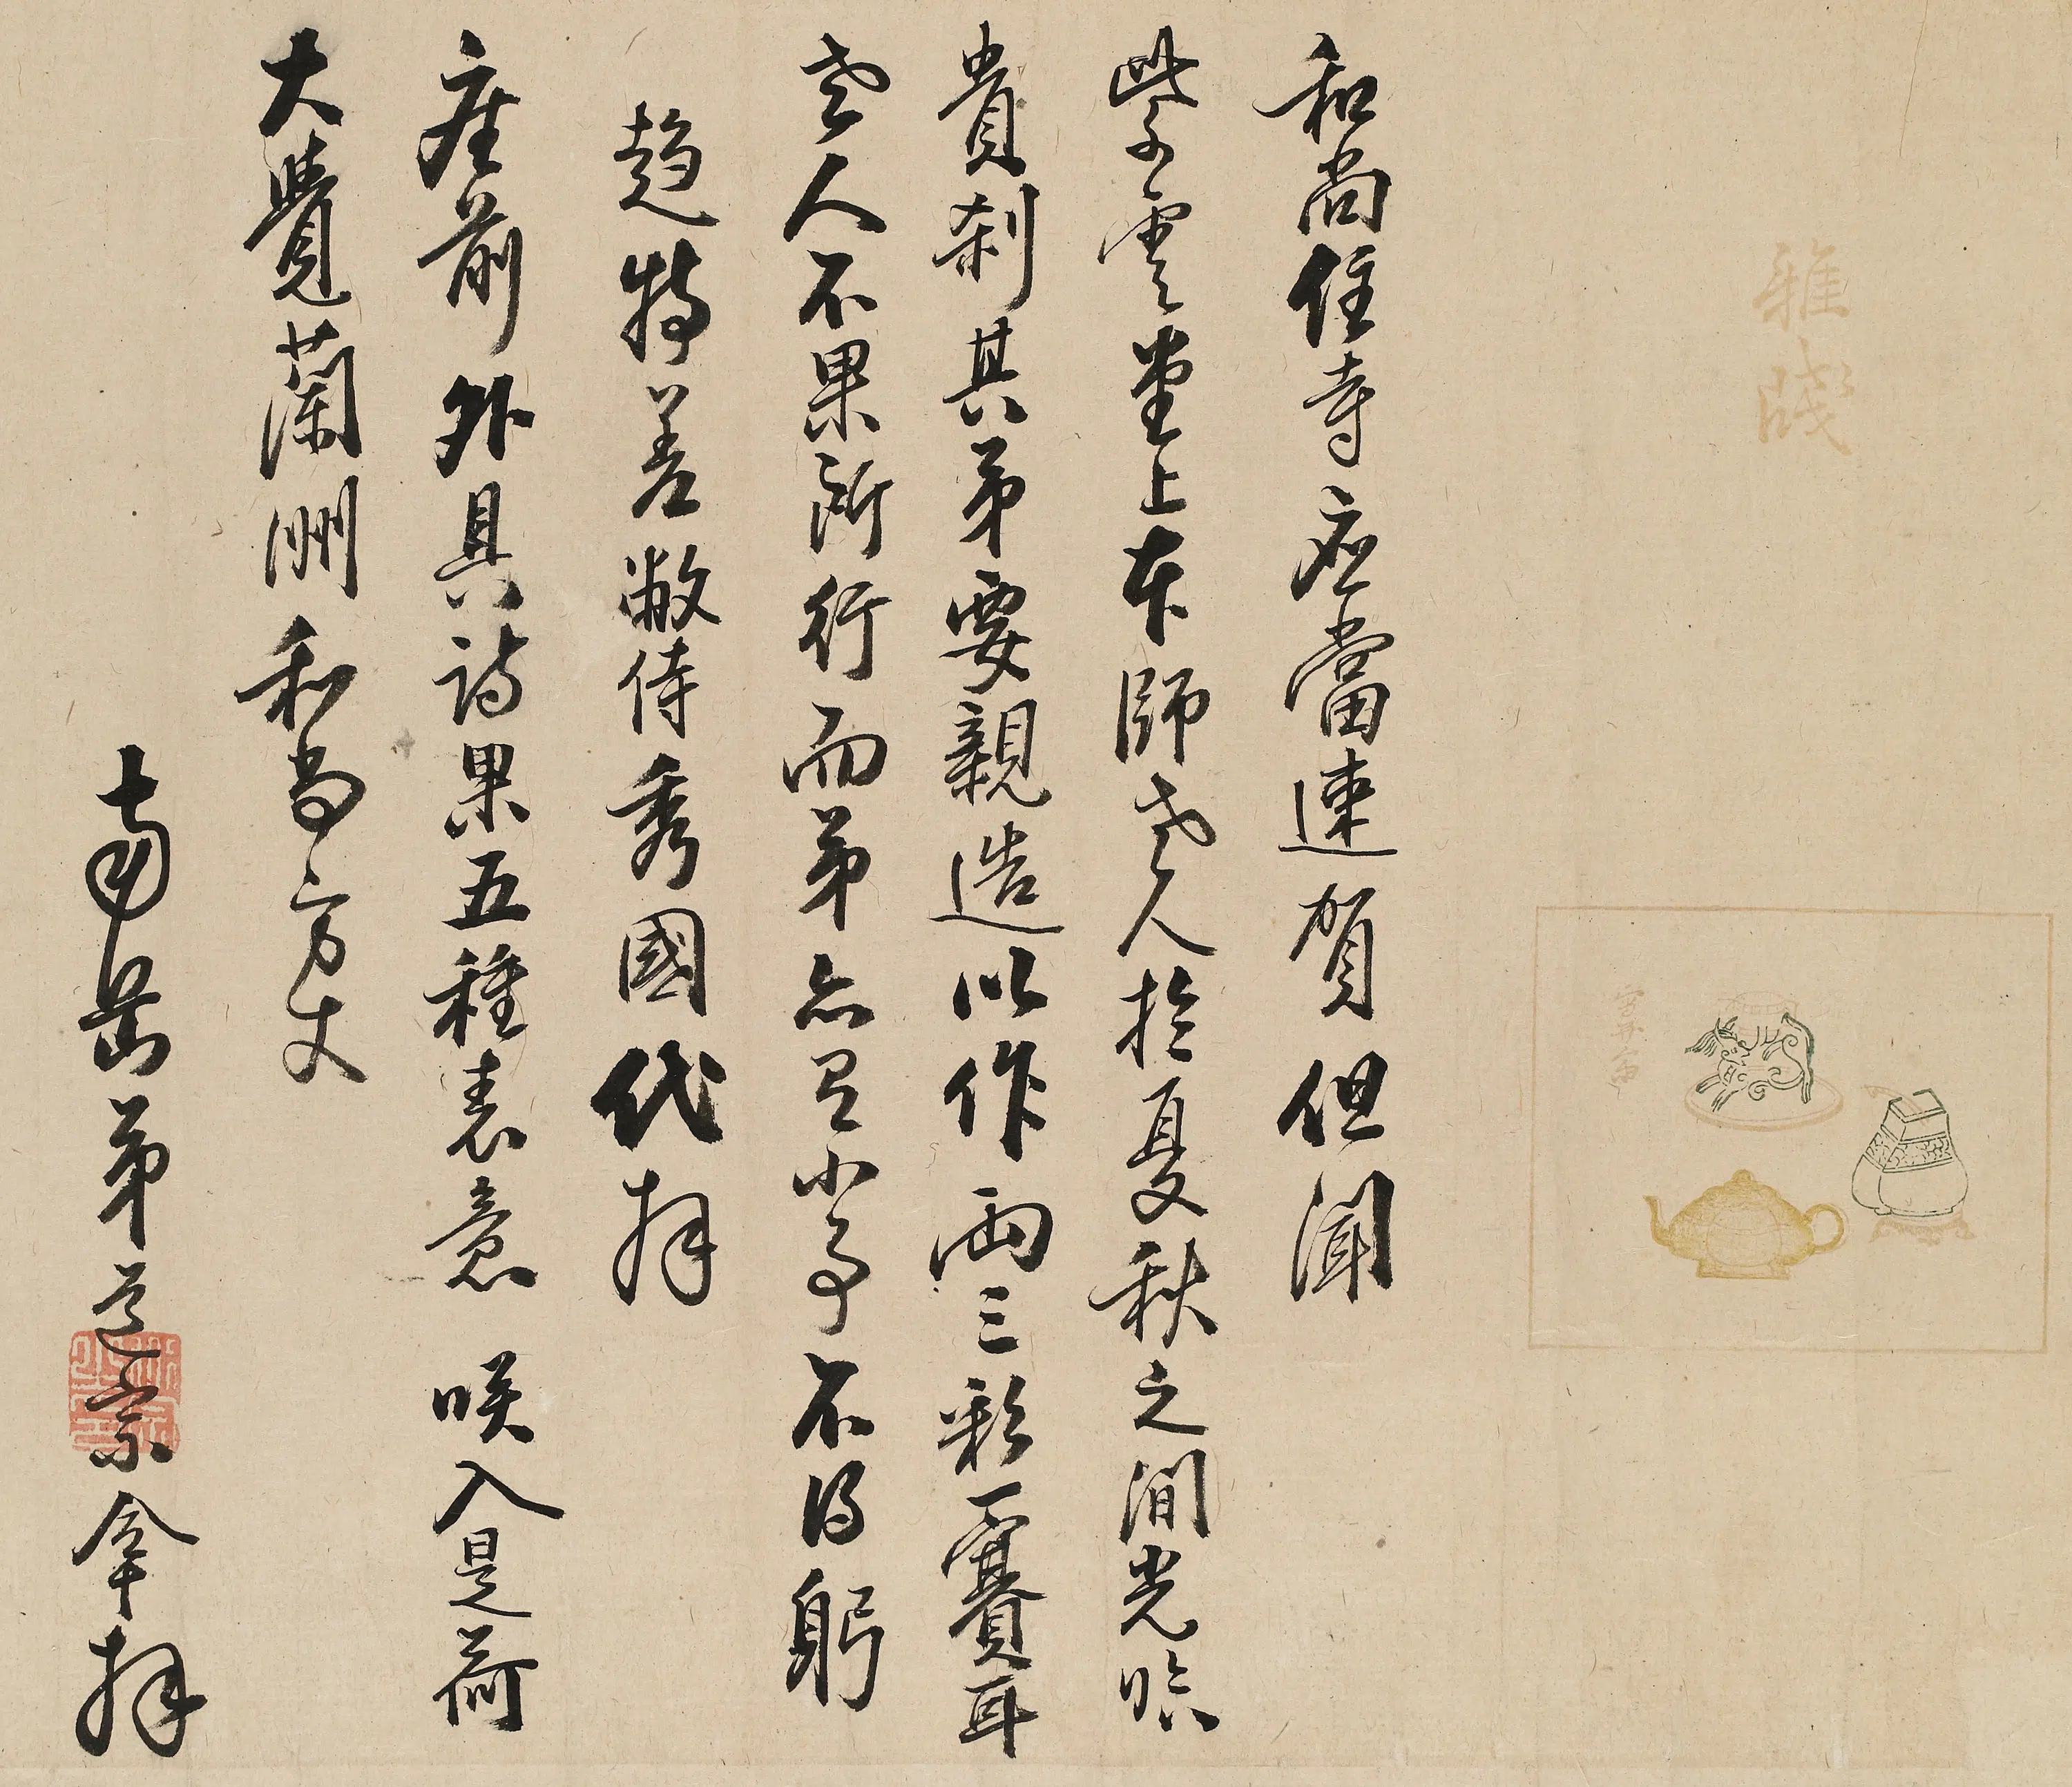 雅牋
和尚住寺应當速賀但聞
紫雲堂上本師老人於夏秋之間光臨
貴剎其弟要親造以作兩三彩一賽耳
老人不果所行而弟亦有小事不得躬
趨特差敝侍秀國代拜
座前外具詩果五種表意 咲入是荷
大覺蘭洲和尚方丈
南岳弟道宗拿拜